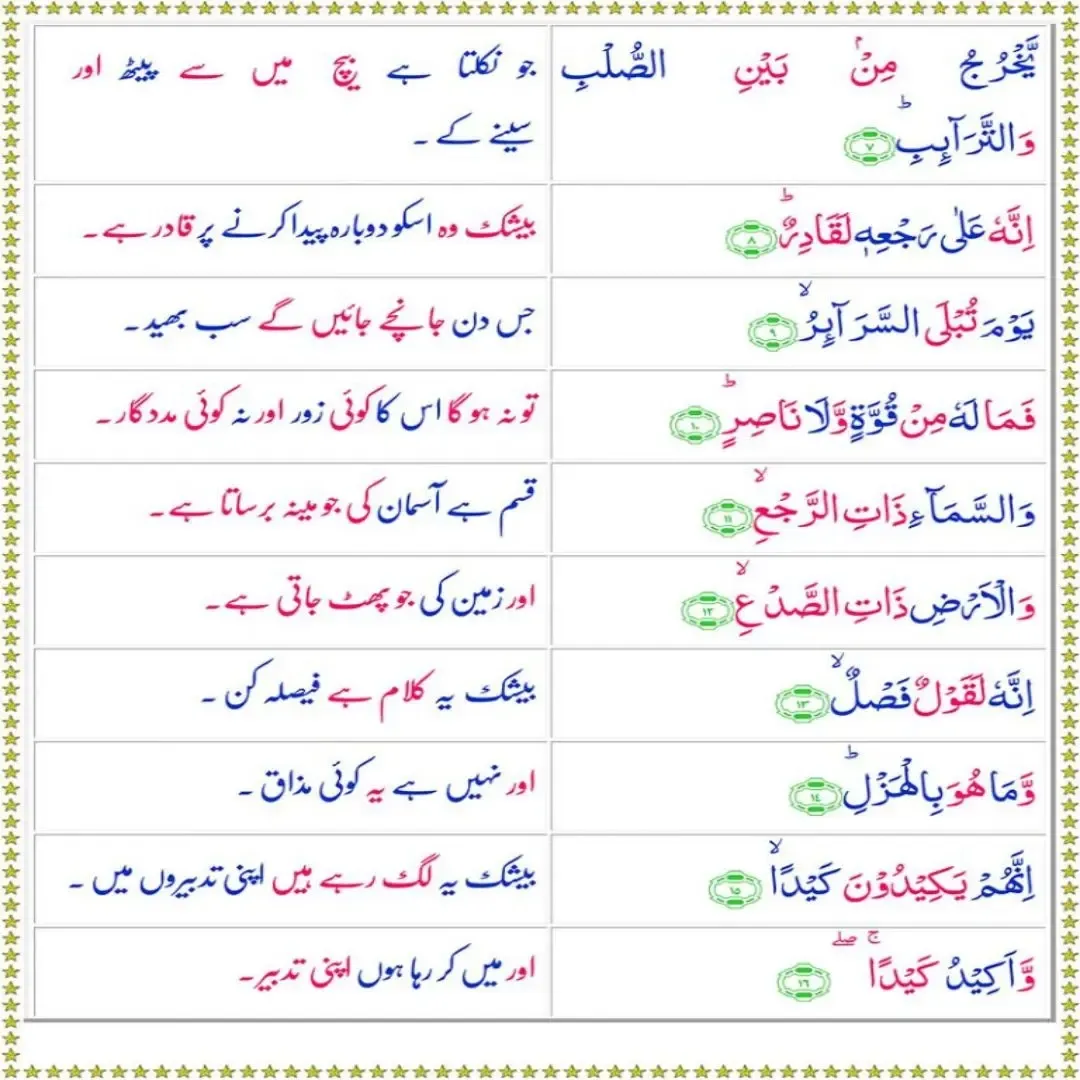 یَّخۡرُجُ مِنۡۢ بَیۡنِ الصُّلۡبِ
وَالتَّرَآئِبِ ؕ ﴿۷﴾
جو نکلتا ہے بیچ میں سے پیٹھ اور
سینے کے ۔
اِنَّهٗ عَلٰی رَجۡعِهٖ لَقَادِرٌ ؕ ﴿۸﴾
بیشک وہ اسکو دوبارہ پیدا کرنے پر قادر ہے ۔
یَوۡمَ تُبۡلَی السَّرَآئِرُ ۙ ﴿۹﴾
جس دن جانچے جائیں گے سب بھید ۔
فَمَا لَهٗ مِنۡ قُوَّۃٍ وَّلَا نَاصِرٍ ؕ ﴿۱۰﴾
تو نہ ہو گا اس کا کوئی زور اور نہ کوئی مددگار ۔
وَالسَّمَآءِ ذَاتِ الرَّجۡعِ ۙ ﴿۱۱﴾
قسم ہے آسمان کی جو مینہ برساتا ہے ۔
وَالۡاَرۡضِ ذَاتِ الصَّدۡعِ ۙ ﴿۱۲﴾
اور زمین کی جو پھٹ جاتی ہے ۔
اِنَّهٗ لَقَوۡلٌ فَصۡلٌ ۙ ﴿۱۳﴾
بیشک یہ کلام ہے فیصلہ کن ۔
وَّمَا هُوَ بِالۡهَزۡلِ ؕ ﴿۱۴﴾
اور نہیں ہے یہ کوئی مذاق ۔
اِنَّهُمۡ یَکِیۡدُوۡنَ کَیۡدًا ۙ ﴿۱۵﴾
بیشک یہ لگ رہے ہیں اپنی تدبیروں میں ۔
وَّاَکِیۡدُ کَیۡدًا ۚۖ ﴿۱۶﴾
اور میں کر رہا ہوں اپنی تدبیر ۔